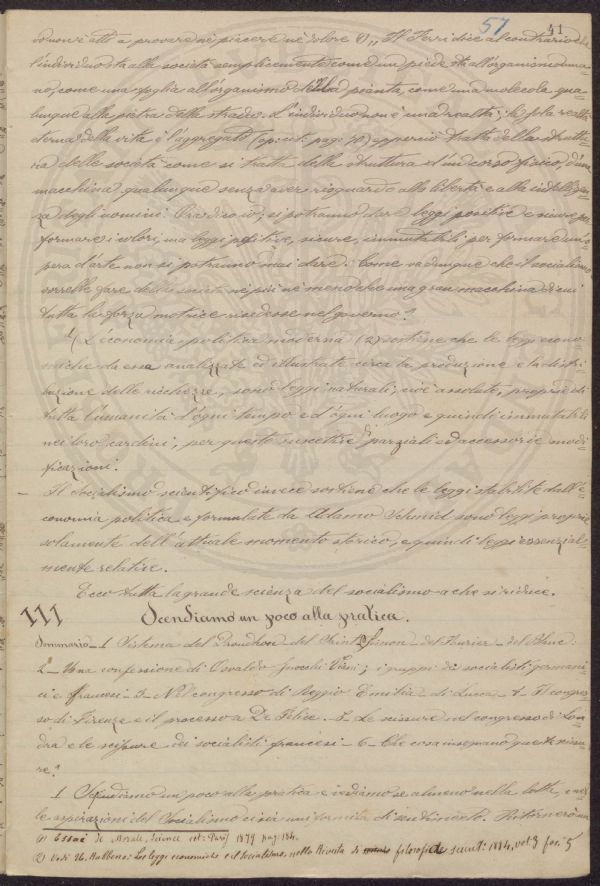 57 41
do non è atto a provare nè piacere nè dolore (1). Il Ferri dice al contrario che
l'individuo sta alla società semplicemente come un piede sta all'organismo uma-
no, come una foglia all'organismo della pianta, come una molecola qua-
lunque alla pietra delle strade. L'individuo non è una realtà; la sola realtà
eterna della vita è l'aggregato (op. cit. pag. ) epperciò tratta della strut-
ra della società come si tratta della struttura d'un corso fisico, d'una
macchina qualunque senza aver risguardo alla libertà e alla intelligen-
za degli uomini. Ora dico io; si potranno dare leggi positive e sicure per
formare i colori, ma leggi positive, sicure, immutabili per formare un'o
pera d'arte non si potranno mai dare. Come va dunque che il socialismo
vorrebbe fare della società nè più nè meno che una gran macchina di cui
tutta la forza motrice risiedesse nel governo?
4) L'economia politica moderna (2) sostiene che le leggi econo-
miche da essa analizzate ed illustrate circa la produzione e la distri-
buzione delle ricchezze, sono leggi naturali, cioè assolute, proprie di
tutta l'umanità d'ogni tempo e d'ogni luogo e quindi immutabili
nei loro cardini, per quanto suscettive di parziali ed accessorie modi-
ficazioni.
– Il socialismo scientifico invece sostiene che le leggi stabilite dall'e-
conomia politica e formulate da Adamo Schmid sono leggi proprie
solamente dell'attuale momento storico, e quindi leggi essenzial-
mente relative.
Ecco tutta la grande scienza del socialismo a che si riduce.
III Scendiamo un poco alla pratica.
Sommario – 1 Sistema del Proudhon del Saint Simon – del Fourier – del Blanc
2 – Una confessione di Osvaldo Gnocchi Viani; i gruppi dei socialisti germani-
ci e francesi – 3 – Nel congresso di Reggio Emilia di Lucca – 4 – Il congres
so di Firenze e il processo a De Felice – 5 Le scissure nel congresso di Lon-
dra e le scissure dei socialisti francesi – 6 – Che cosa insegnano queste scissu-
re?
1 Scendiamo un poco alla pratica e vediamo se almeno nella lotta, e nel-
le aspirazioni del Socialismo ci sia uniformità di sentimento. Ritornerò
(1) Essai de Morale, Science ect: Parigi 1879 pag. 184.
(2) Vedi Ug. Rabbeno: Le leggi economiche e il Socialismo, nella Rivista di filosofia scient: 1884, vol. 3 fas. 5